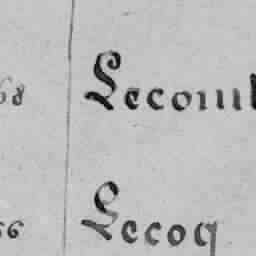 68 Lecomt
66 Lecoq